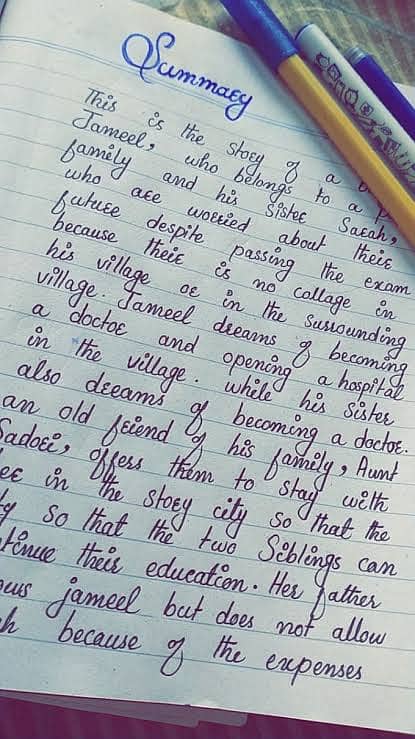 Summary
This is the story of a
Jameel, who belongs to a
family and his Sister Sarah,
who are worried about their
future despite passing the exam
because their is no collage in
his village or in the surrounding
village. Jameel dreams of becoming
a doctor and opening a hospital
in the village. while his Sister
also dreams of becoming a doctor.
an old friend of his family, Aunt
Sadori, offers them to stay with
in the story city so that the
so that the two Siblings can
their education. Her father
jameel but does not allow
because of the expenses